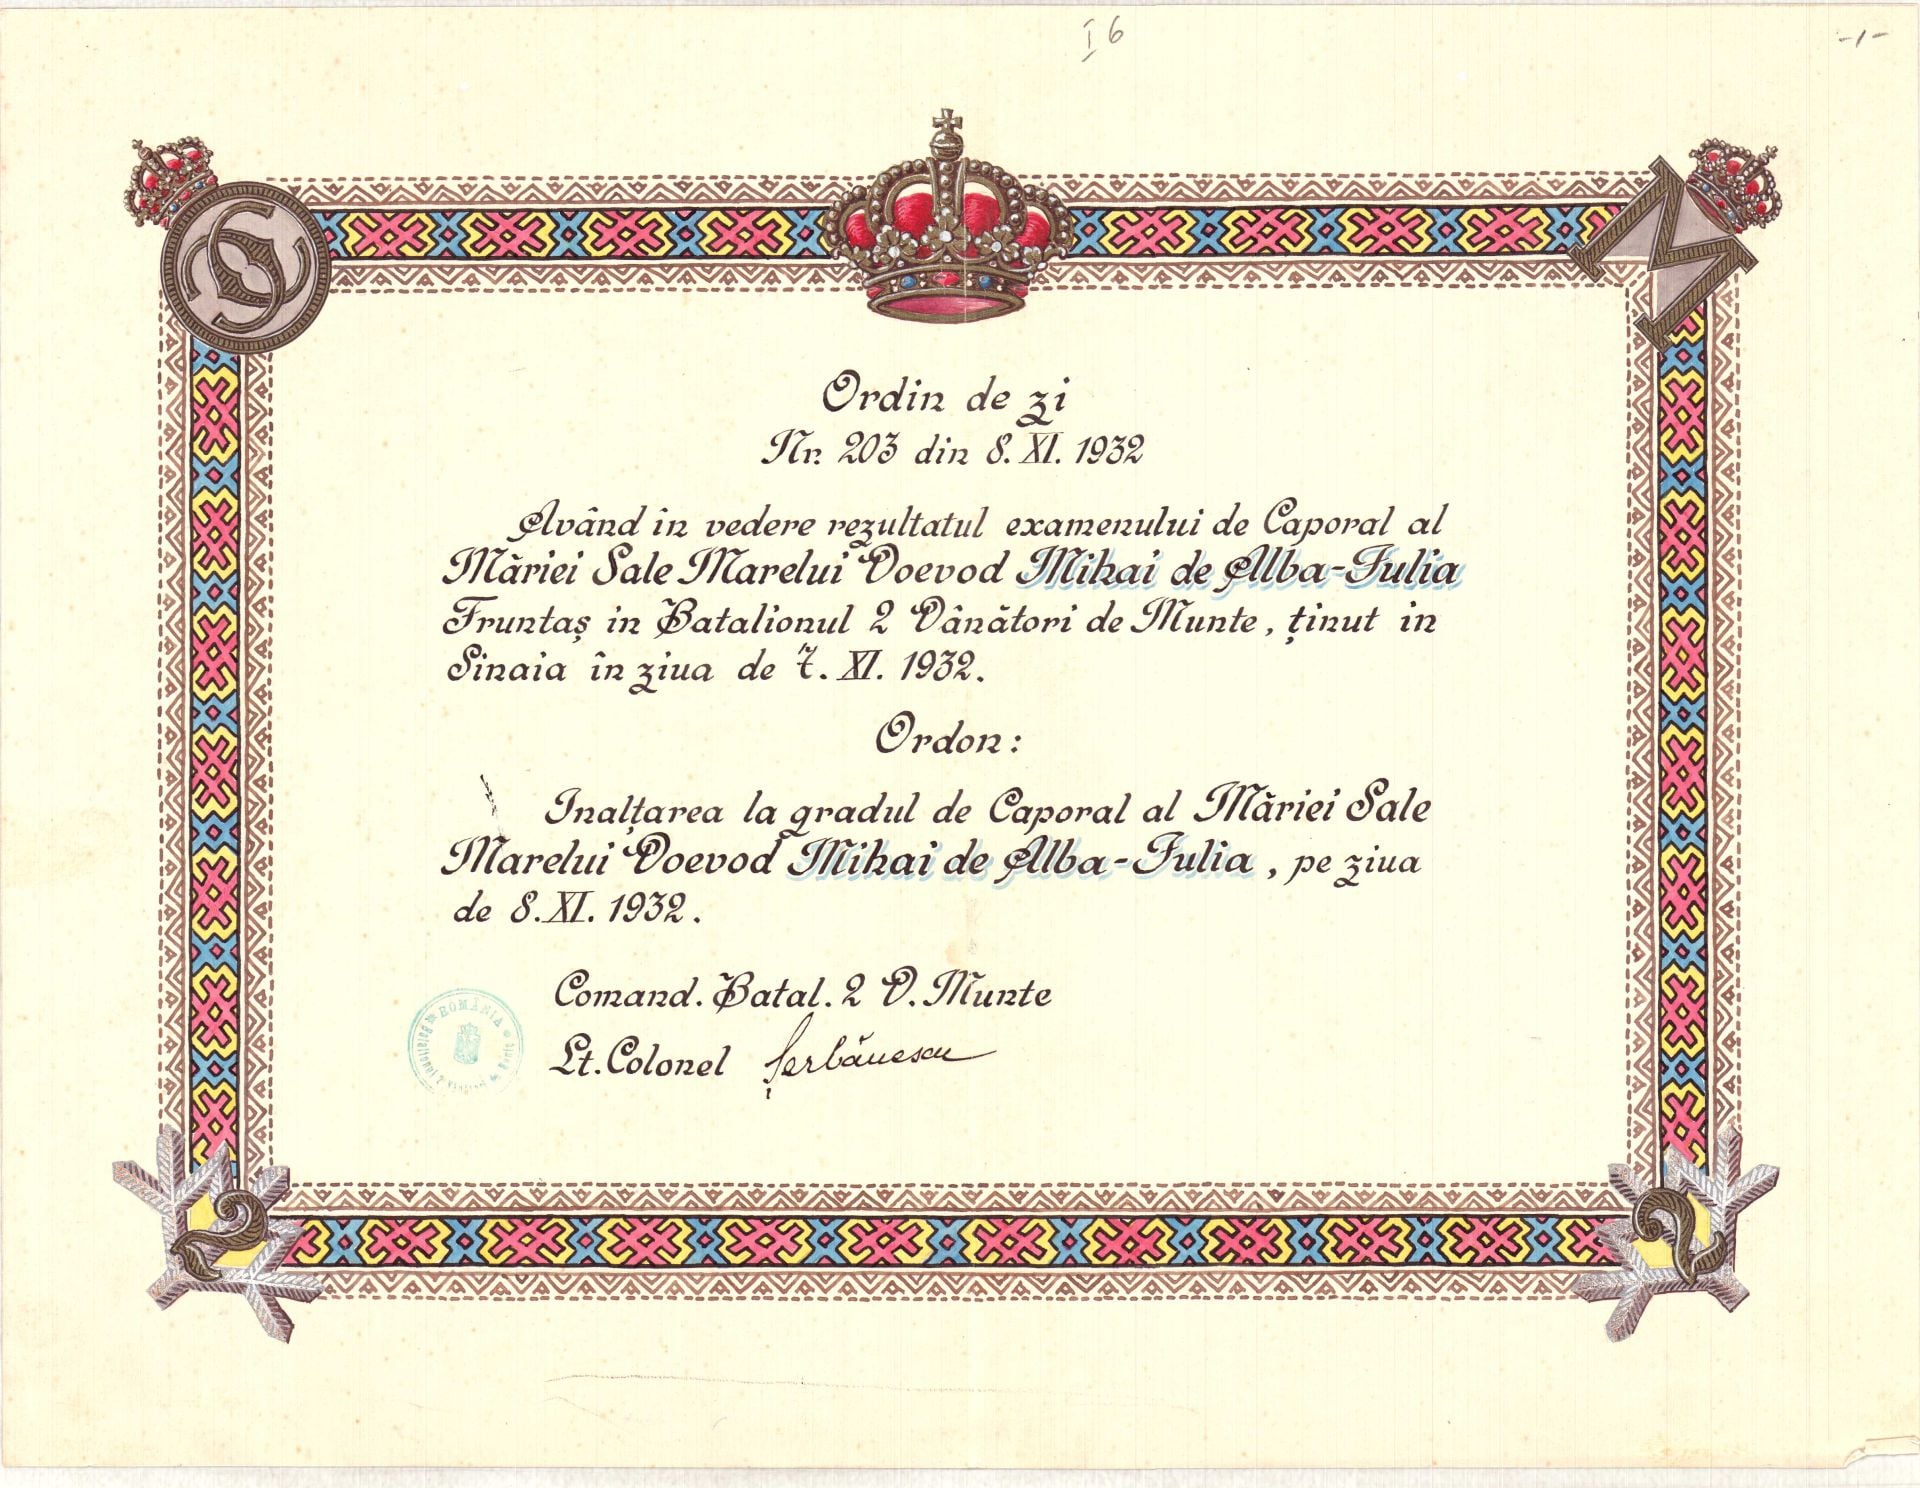 I 6
-1-
Ordin de zi
Nr. 203 din 8. XI. 1932
Având în vedere rezultatul examenului de Caporal al
Măriei Sale Marelui Voevod Mihai de Alba-Iulia
Fruntaș in Batalionul 2 Vânători de Munte, ținut in
Sinaia în ziua de 7. XI. 1932.
Ordon:
Inalțarea la gradul de Caporal al Măriei Sale
Marelui Voevod Mihai de Alba-Iulia, pe ziua
de 8. XI. 1932.
Comand. Batal. 2 V. Munte
Lt. Colonel Șerbănescu
ROMÂNIA
Batalionul 2
M
2
2